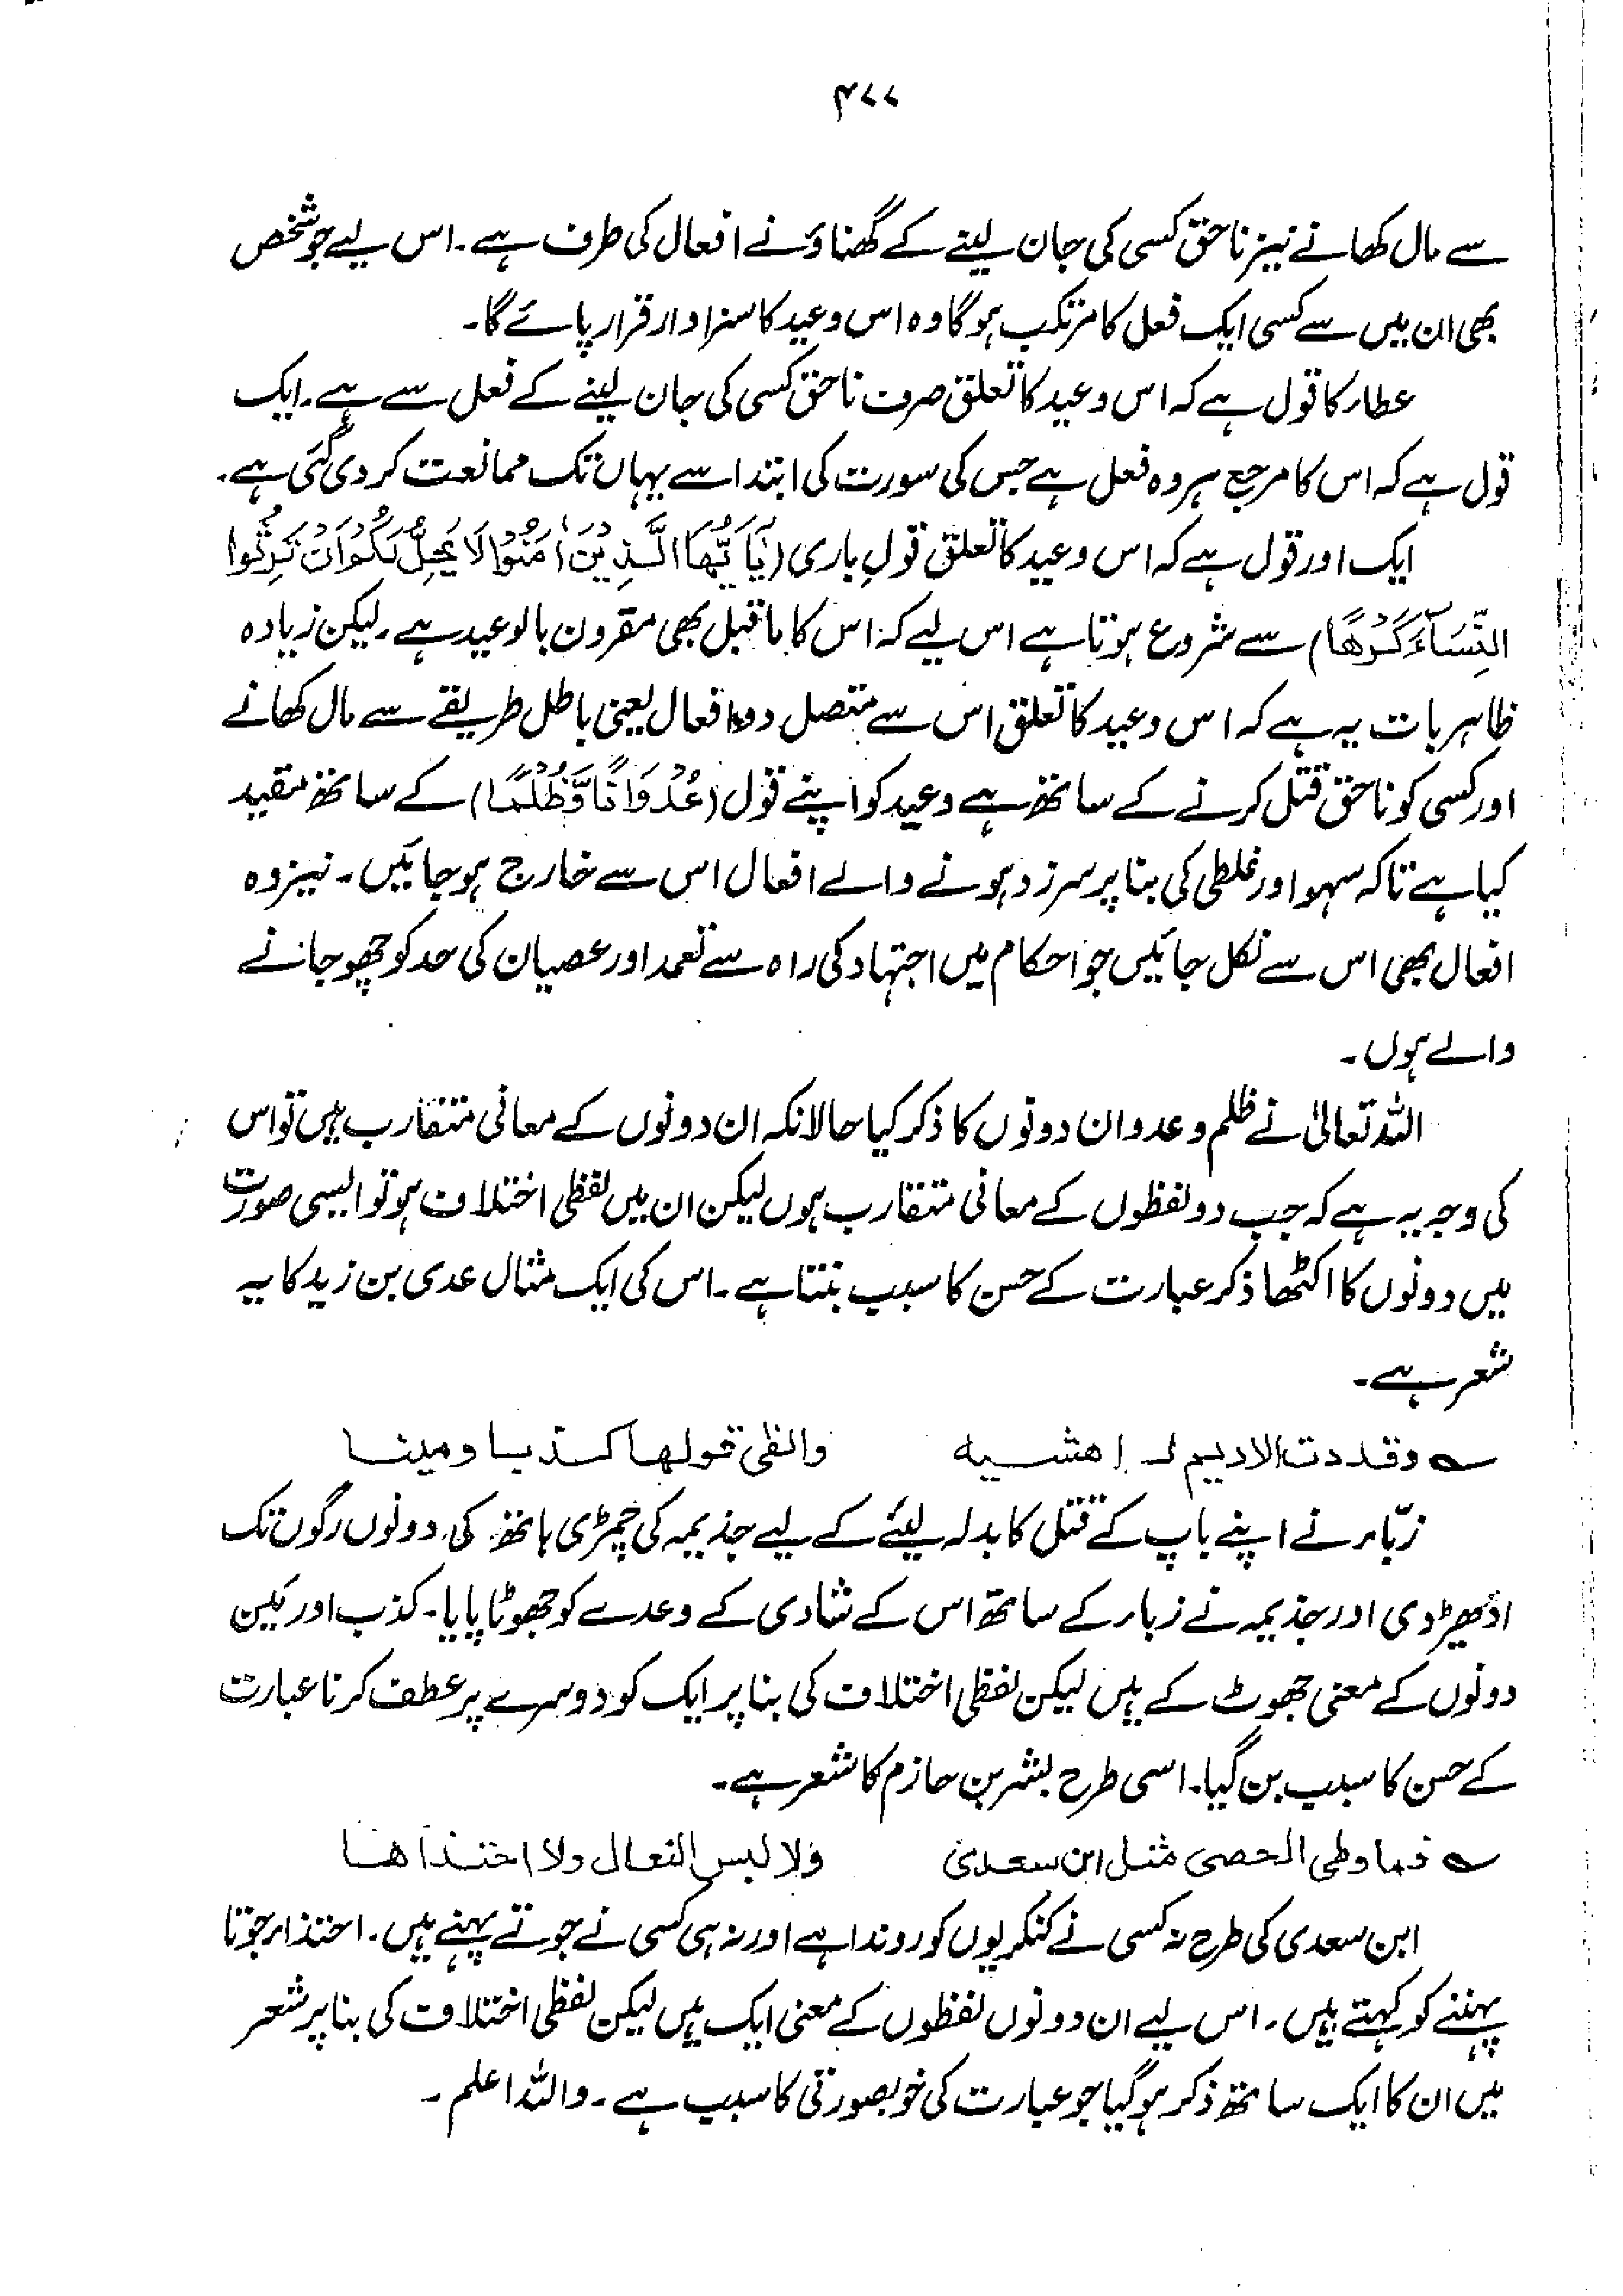 ۴۷۷
سے مال کھانے نیز ناحق کسی کی جان لینے کے گھناؤنے افعال کی طرف ہے۔ اس لیے جو شخص
بھی ان میں سے کسی ایک فعل کا مرتکب ہوگا وہ اس وعید کا سزا وار قرار پائے گا۔
عطاء کا قول ہے کہ اس وعید کا تعلق صرف ناحق کسی کی جان لینے کے فعل سے ہے۔ ایک
قول ہے کہ اس کا مرجع ہر وہ فعل ہے جس کی سورت کی ابتدا سے یہاں تک ممانعت کر دی گئی ہے۔
ایک اور قول ہے کہ اس وعید کا تعلق قولِ باری (يَآ اَيُّهَا الَّذِيْنَ اٰمَنُوْا لَا يَحِلُّ لَكُمْ اَنْ تَرِثُوا
النِّسَآءَ كَرْهًا) سے شروع ہوتا ہے اس لیے کہ اس کا ماقبل بھی مقرون بالوعید ہے۔ لیکن زیادہ
ظاہر بات یہ ہے کہ اس وعید کا تعلق اس سے متصل دو افعال یعنی باطل طریقے سے مال کھانے
اور کسی کو ناحق قتل کرنے کے ساتھ ہے وعید کو اپنے قول (عُدْوَانًا وَّظُلْمًا) کے ساتھ مقید
کیا ہے تاکہ سہو اور غلطی کی بنا پر سرزد ہونے والے افعال اس سے خارج ہو جائیں۔ نیز وہ
افعال بھی اس سے نکل جائیں جو احکام میں اجتہاد کی راہ سے تعمد اور عصیان کی حد کو چھو جانے
والے ہوں۔
اللہ تعالیٰ نے ظلم و عدوان دونوں کا ذکر کیا حالانکہ ان دونوں کے معانی متقارب ہیں تو اس
کی وجہ یہ ہے کہ جب دو لفظوں کے معانی متقارب ہوں لیکن ان میں لفظی اختلاف ہو تو ایسی صورت
میں دونوں کا اکٹھا ذکر عبارت کے حسن کا سبب بنتا ہے۔ اس کی ایک مثال عدی بن زید کا یہ
شعر ہے۔
؎ وقددت الاديم لراهشيه والفى قولها كذبا ومينا
زبّاء نے اپنے باپ کے قتل کا بدلہ لینے کے لیے جذیمہ کی چمڑی ہاتھ کی دونوں رگوں تک
ادھیڑ دی اور جذیمہ نے زباء کے ساتھ اس کے شادی کے وعدے کو جھوٹا پایا۔ کذب اور مَین
دونوں کے معنی جھوٹ کے ہیں لیکن لفظی اختلاف کی بنا پر ایک کو دوسرے پر عطف کرنا عبارت
کے حسن کا سبب بن گیا۔ اسی طرح بشر بن حازم کا شعر ہے۔
؎ فما وطى الحصى مثل ابن سعدى ولا لبس النعال ولا احتذاها
ابن سعدی کی طرح نہ کسی نے کنکریوں کو روندا ہے اور نہ ہی کسی نے جوتے پہنے ہیں۔ احتذاء جوتا
پہننے کو کہتے ہیں۔ اس لیے ان دونوں لفظوں کے معنی ایک ہیں لیکن لفظی اختلاف کی بنا پر شعر
میں ان کا ایک ساتھ ذکر ہو گیا جو عبارت کی خوبصورتی کا سبب ہے۔ واللہ اعلم۔